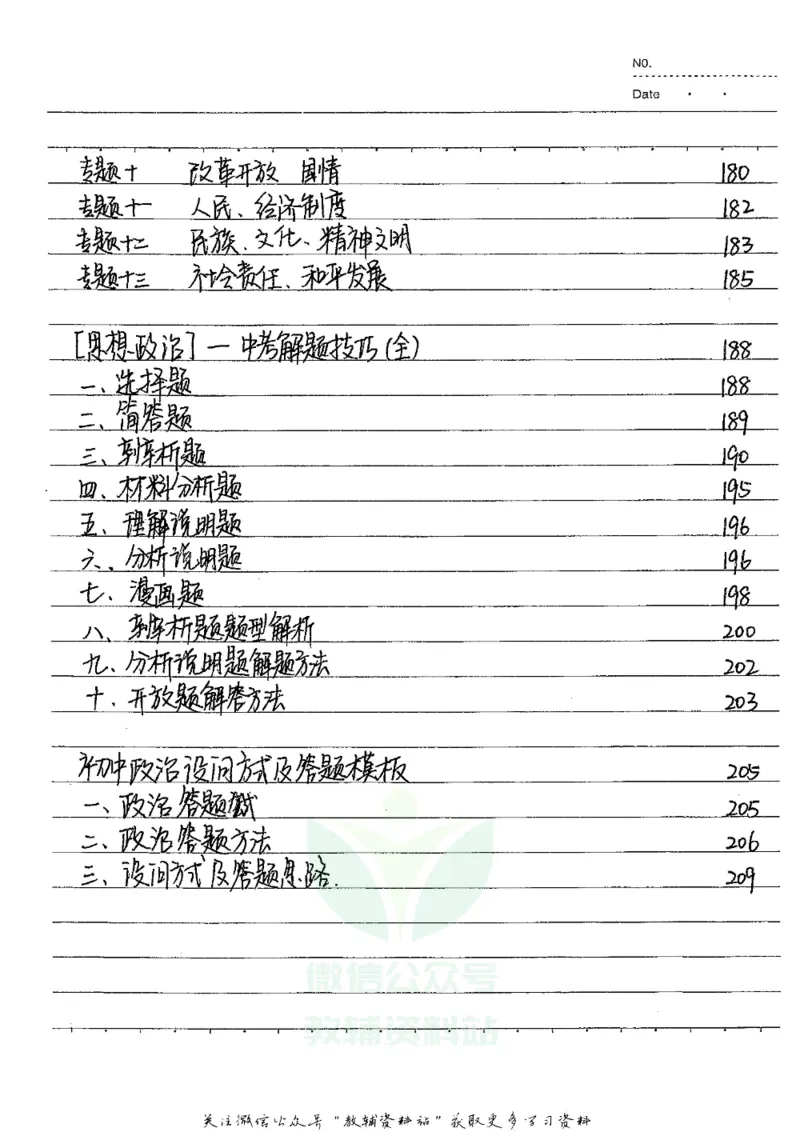 No.
Date
专题十 改革开放 国情 180
专题十一 人民、经济制度 182
专题十二 民族、文化、精神文明 183
专题十三 社会责任、和平发展 185
[思想政治]一中考解题技巧(全) 188
一、选择题 188
二、简答题 189
三、辨析题 190
四、材料分析题 195
五、理解说明题 196
六、分析说明题 196
七、漫画题 198
八、辨析题题型解析 200
九、分析说明题解题方法 202
十、开放题解答方法 203
初中政治设问方式及答题模板 205
一、政治答题 205
二、政治答题方法 206
三、设问方式及答题思路. 209
微信公众号
教辅资料站
关注微信公众号"教辅资料站"获取更多学习资料